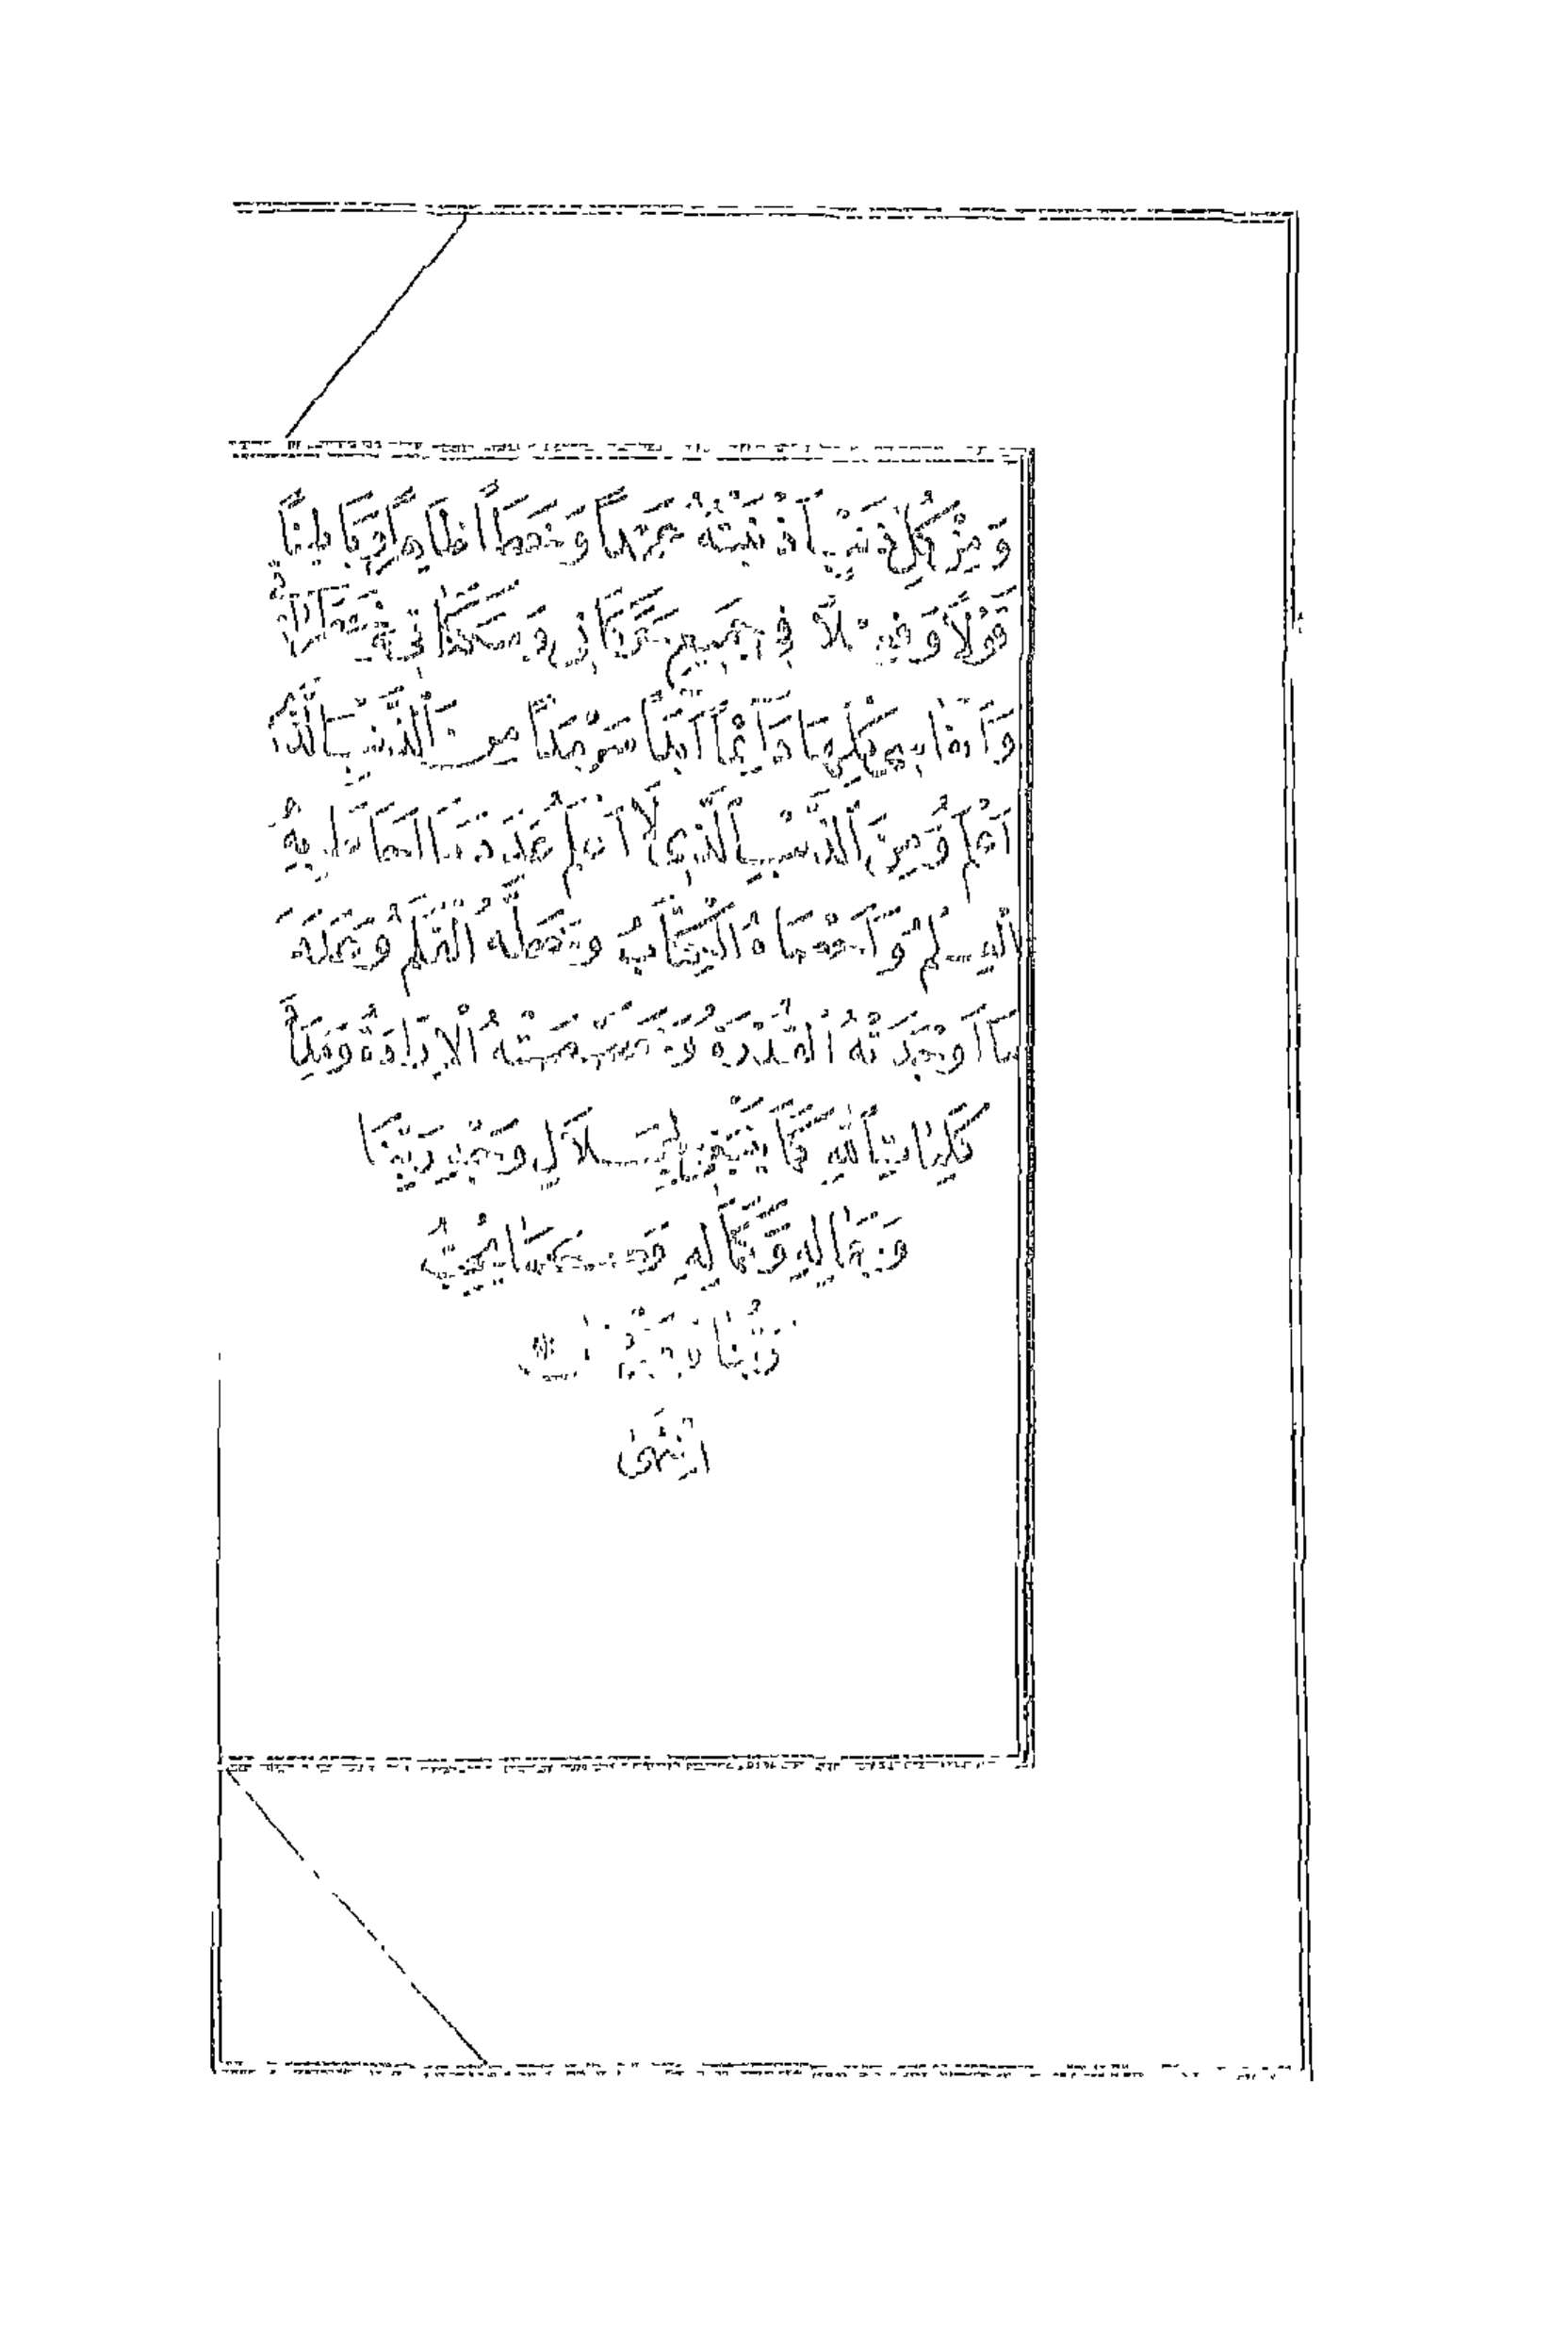 وَمِنْ كُلِّ ذَنْبٍ اَذْنَبْتُهُ عَمْدًا وَخَطَأً ظَاهِرًا وَبَاطِنًا
قَوْلًا وَفِعْلًا فِي جَمِيعِ حَرَكَاتِي وَسَكَنَاتِي وَخَطَرَاتِي
وَاَنْفَاسِي كُلِّهَا دَآئِمًا اَبَدًا سَرْمَدًا مِنَ الذَّنْبِ الَّذِي
اَعْلَمُ وَمِنَ الذَّنْبِ الَّذِي لَا اَعْلَمُ عَدَدَ مَا اَحَاطَ بِهِ
الْعِلْمُ وَاَحْصَاهُ الْكِتَابُ وَخَطَّهُ الْقَلَمُ وَعَدَدَ
مَا اَوْجَدَتْهُ الْقُدْرَةُ وَخَصَّصَتْهُ الْاِرَادَةُ وَمِدَادَ
كَلِمَاتِ اللهِ كَمَا يَنْبَغِي لِجَلَالِ وَجْهِ رَبِّنَا
وَجَمَالِهِ وَكَمَالِهِ وَكَمَا يُحِبُّ
رَبُّنَا وَيَرْضَى
اِنْتَهَى